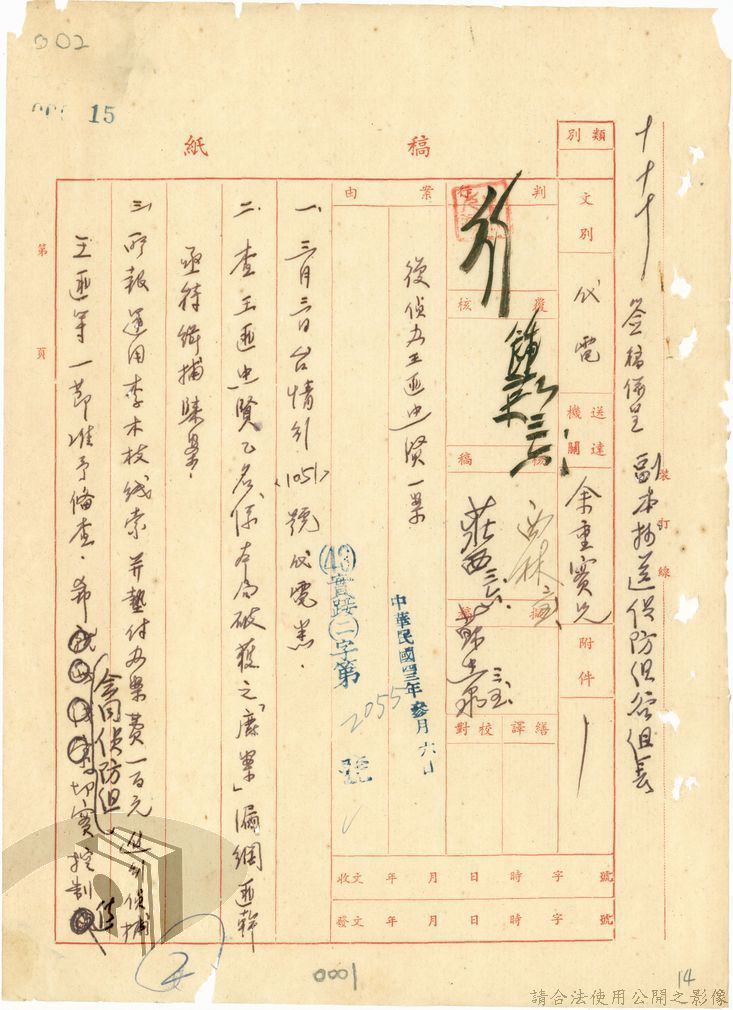 002
15
稿紙
類別
十十十
簽稿係呈 副本抄送偵防組谷組長
裝訂線
文別
代電
送達機關
余重實兄
附件
判行
覆核
核稿
擬稿
繕譯
校對
莊西三六
案由
復偵办王匪忠賢一案
中華民國四三年叁月六日
(43)實踐(二)字第2055號
收文 年 月 日 時 字 號
發文 年 月 日 時 字 號
一、三月三日台情列〈1051〉號代電悉.
二、查王匪忠賢乙名、係本局破獲之「鹿案」漏網匪幹
亟待緝捕歸案.
三、所報運用李木枝線索并墊付办案費一百元進行偵捕
王匪等一節准予備查.希會同偵防組切實控制
第 頁
2
0001
14
請合法使用公開之影像